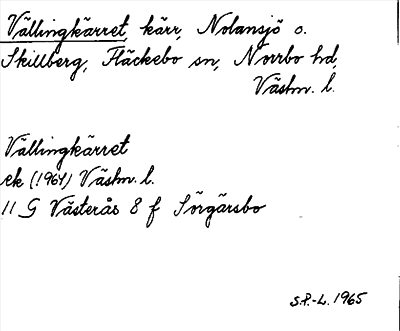 Vällingkärret, kärr, Nolansjö o.
Skillberg, Fläckebo sn, Norrbo hd,
Västm. l.
Vällingkärret
ek (1964) Västm. l.
11 G Västerås 8 f Sörgärsbo
S.P.-L. 1965